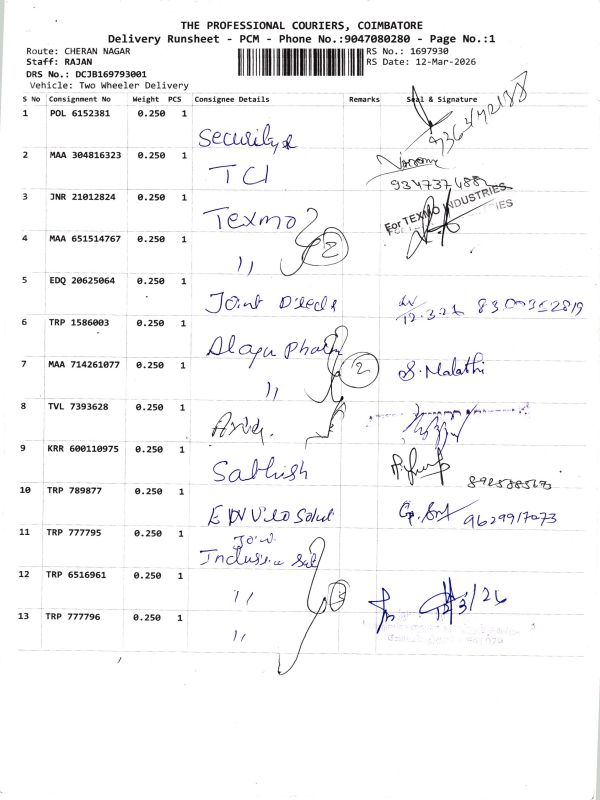 THE PROFESSIONAL COURIERS, COIMBATORE
Delivery Runsheet - PCM - Phone No.:9047080280 - Page No.:1
Route: CHERAN NAGAR
RS No.: 1697930
Staff: RAJAN
RS Date: 12-Mar-2026
DRS No.: DCJB169793001
Vehicle: Two Wheeler Delivery
S No Consignment No Weight PCS Consignee Details Remarks Seal & Signature
1 POL 6152381 0.250 1
2 MAA 304816323 0.250 1 TCI
3 JNR 21012824 0.250 1 Texmo For TEXMO INDUSTRIES
4 MAA 651514767 0.250 1 " 2
5 EDQ 20625064 0.250 1 Joint
6 TRP 1586003 0.250 1
7 MAA 714261077 0.250 1 " 2 S. Malathi
8 TVL 7393628 0.250 1
9 KRR 600110975 0.250 1 Sathish
10 TRP 789877 0.250 1 9629917073
11 TRP 777795 0.250 1
12 TRP 6516961 0.250 1 " 3
13 TRP 777796 0.250 1 "